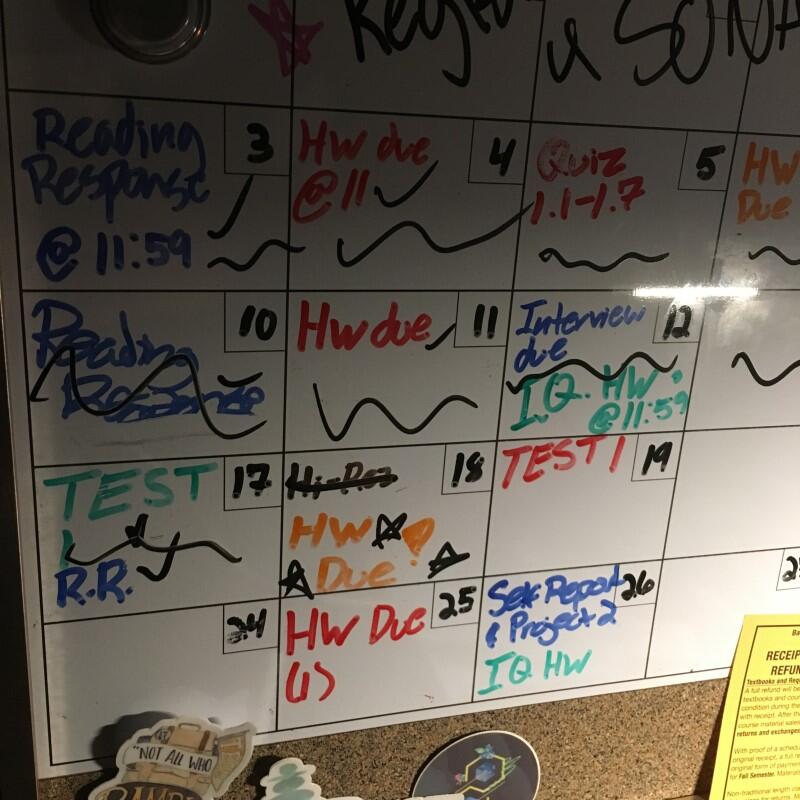 & SONA
Reading
Response
@ 11:59
3
HW due
@ 11
4
Quiz
1.1-1.7
5
HW
Due
Reading
Response
10
Hw due
11
Interview
due
I.Q. HW
@ 11:59
12
TEST
1
R.R.
17
HW
Due
18
TEST 1
19
24
HW Due
(1)
25
Self Report
& Project 2
IQ HW
26
"NOT ALL WHO
RECEIP
REFUN
Textbooks and Requ
A full refund will be
textbooks and cour
condition during the
with receipt. After th
course material sale
returns and exchanges
With proof of a schedu
original receipt, a full re
original form of payme
for Fall Semester. Materia
Non-traditional length co